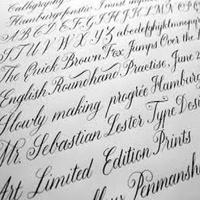 Calligraphy
Hamburgefonstiv I must
ABCDEFGHIJKLMNOP
STUVWXYZ abcdefghijklmnopqr
The Quick Brown Fox Jumps Over the
English Roundhand Practise, June
Slowly making progre Hamburg
Mr. Sebastian Lester Type Desi
Art Limited Edition Prints
Penmansh